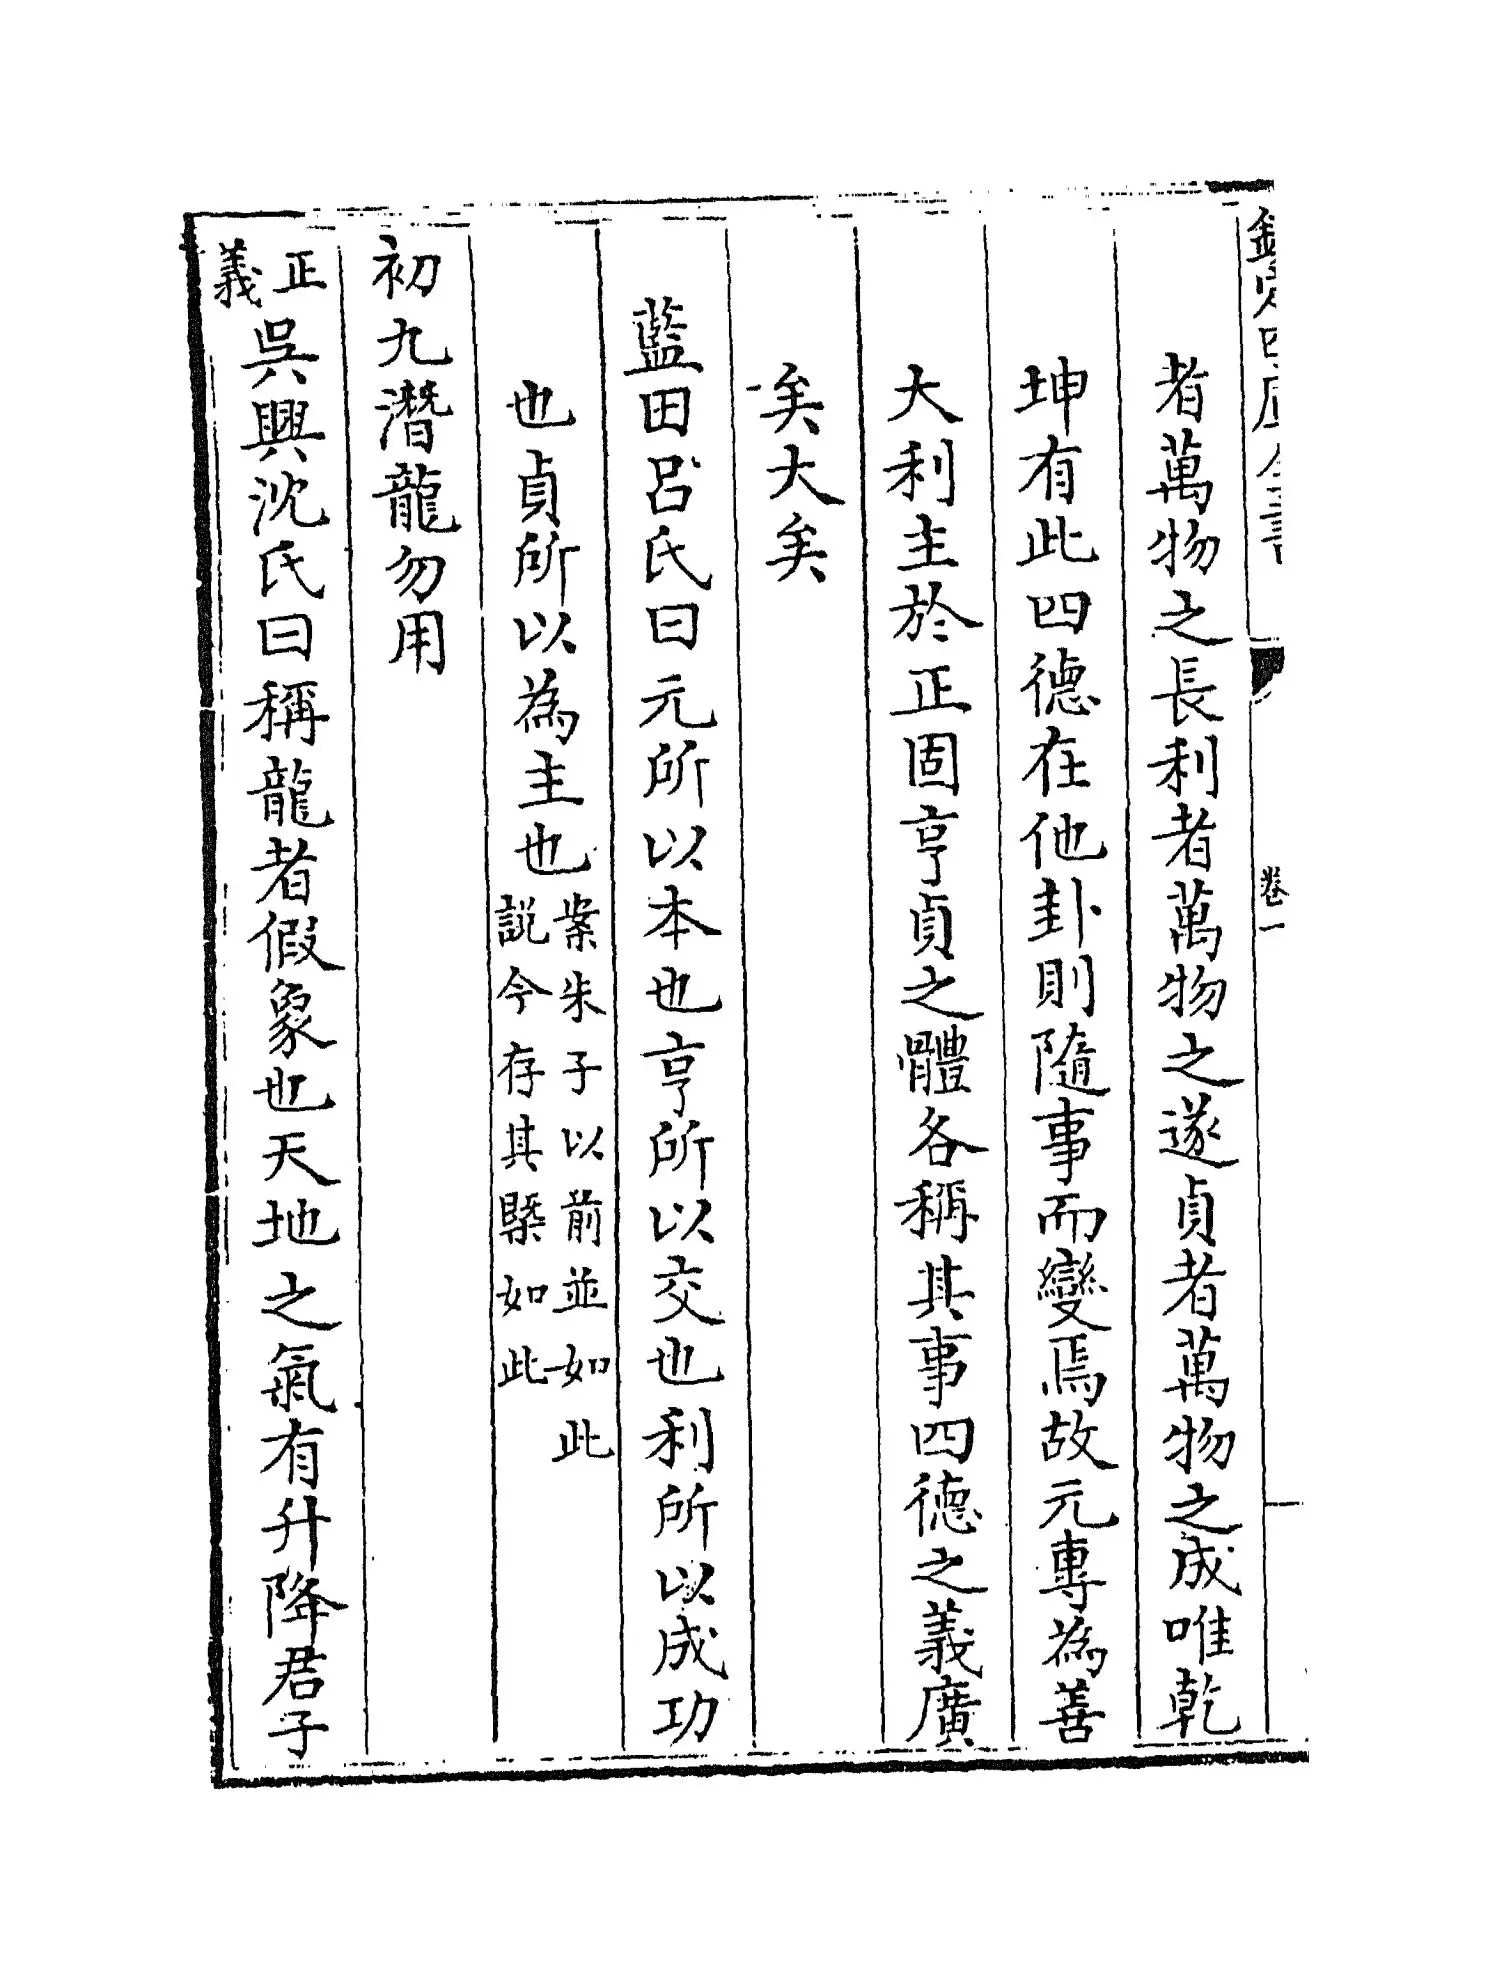 欽定四庫全書
卷一
者萬物之長利者萬物之遂貞者萬物之成唯乾
坤有此四德在他卦則隨事而變焉故元專為善
大利主於正固亨貞之體各稱其事四德之義廣
矣大矣
藍田呂氏曰元所以本也亨所以交也利所以成功
也貞所以為主也案朱子以前並如此
說今存其槩如此
初九潛龍勿用
正義吳興沈氏曰稱龍者假象也天地之氣有升降君子